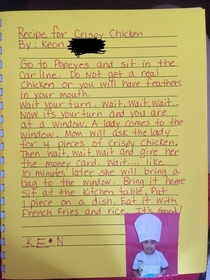 Recipe for Crispy Chicken
By: Keon
Go to Popeyes and sit in the
car line. Do not get a real
Chicken or you will have feathas
in your mouth.
Wait your turn. Wait, Wait, Wait.
Now its your turn and you are
at a window. A lady comes to the
window. Mom will ask the lady
for 4 pieces of Crispy Chicken.
Then wait, wait, wait and give her
the money card. Wait.... like
10 minutes later she will bring a
bag to the window. Bring it home
sit at the Kitchen table. Put
1 piece on a dish. Eat it with
French Fries and rice. It's Good!
KEON